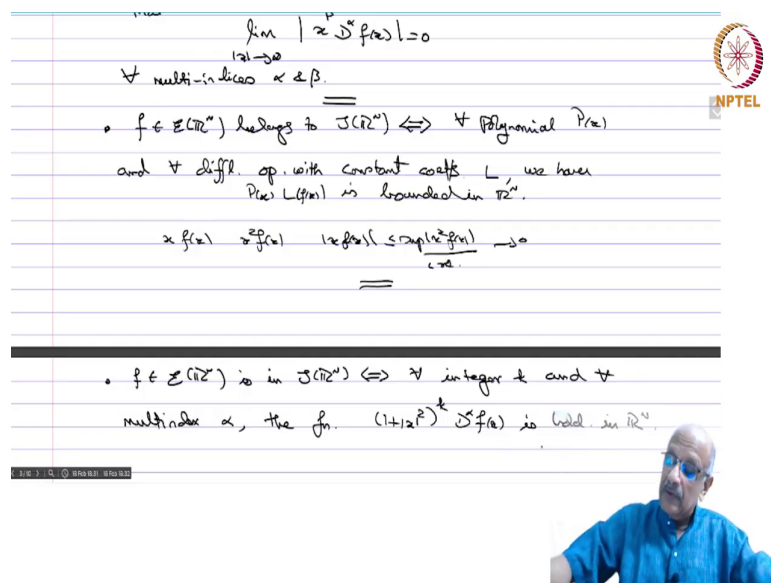 lim | x^β D^α f(x) | = 0
|x| → ∞
∀ multi-indices α & β.
• f ∈ Ɛ(ℝ^N) belongs to S(ℝ^N) ⟺ ∀ polynomial P(x)
and ∀ diffl. op. with constant coeffs L, we have
P(x) L(f(x)) is bounded in ℝ^N.
x f(x) x² f(x) |x f(x)| ≤ sup |x² f(x)| → 0
• f ∈ Ɛ(ℝ^N) is in S(ℝ^N) ⟺ ∀ integer k and ∀
multiindex α, the fn. (1+|x|²)^k D^α f(x) is bdd. in ℝ^N.
NPTEL